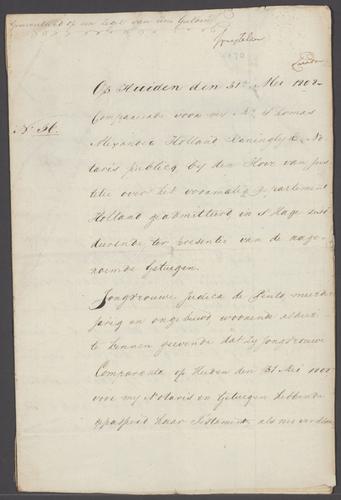 Op Huiden den 31e Mei 1802
N. 36.
Compareerde voor my Mr. Thomas
Alexander Holland Koninglyk No
taris publicq by den Hove van Jus
titie over het voormalig Departement
Holland geadmitteerd in s Hage resi
deerende ter presentie van de nage
noemde Getuigen.
Jongvrouwe Judica de Pinto meerder
jarig en ongehuwd woonende alhier
te kennen geevende dat zy Jongvrouwe
Comparante op Heden den 31 Mei
voor my Notaris en Getuigen hebbende
gepasseerd haar Testament, als nu verdere